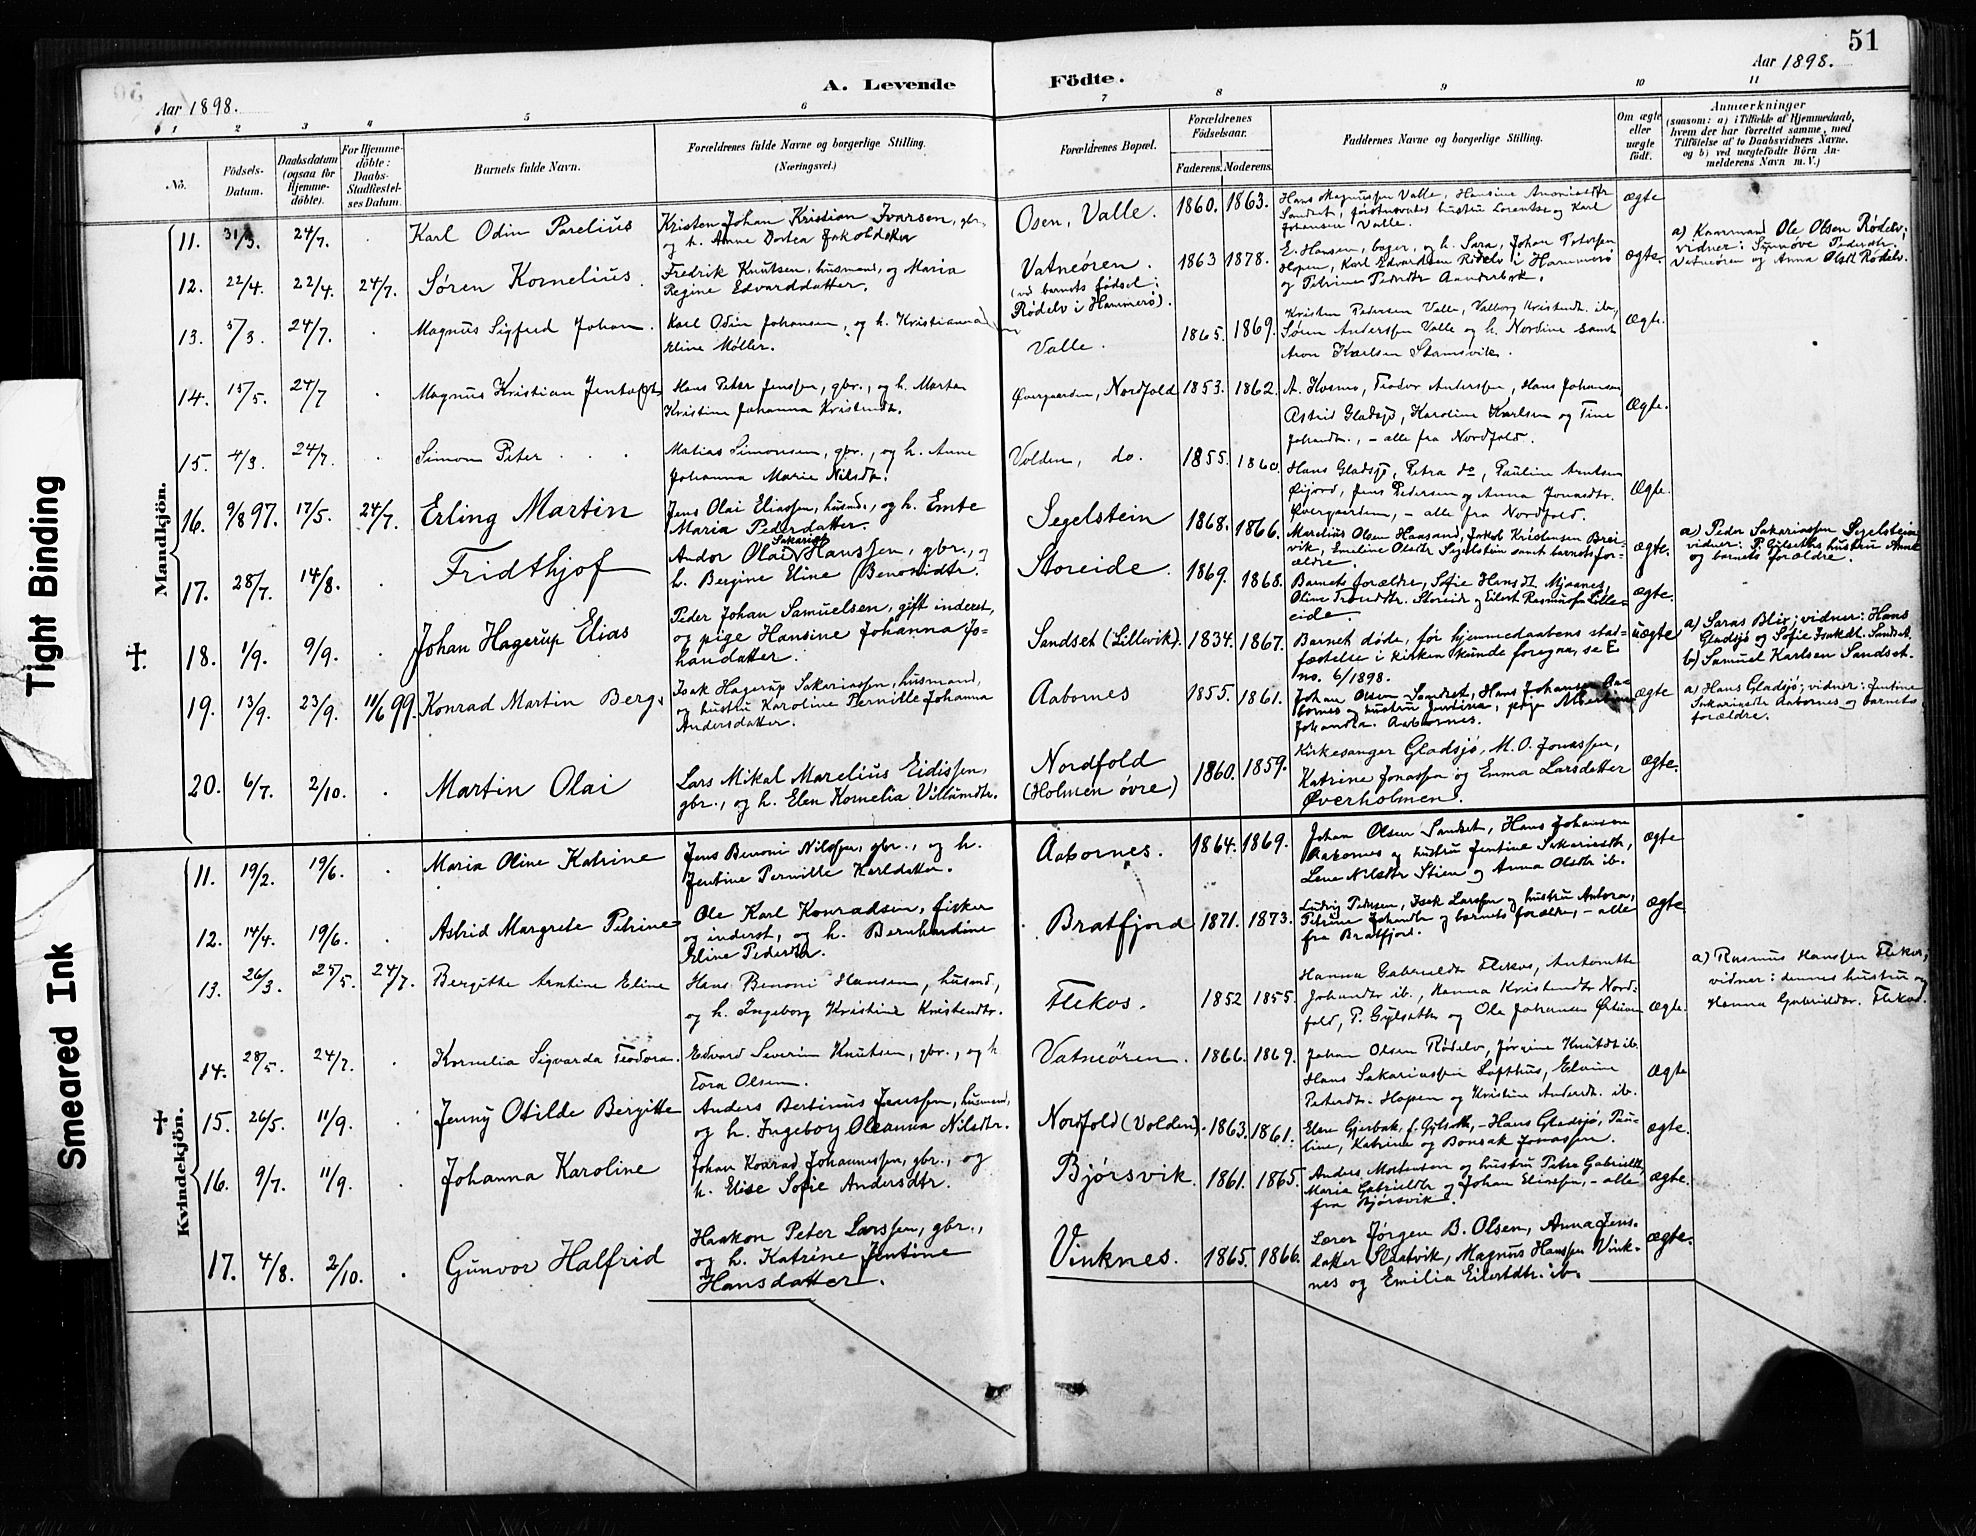 51
A. Levende Födte.
Aar 1898.
Aar 1898.
1 2 3 4 5 6 7 8 9 10 11
No.
Födsels-Datum.
Daabsdatum (ogsaa for Hjemme-döbte).
For Hjemme-döbte: Daabs-Stadfæstel-ses Datum.
Barnets fulde Navn.
Forældrenes fulde Navne og borgerlige Stilling.
(Næringsvei.)
Forældrenes Bopæl.
Forældrenes Födselsaar.
Faderens. Moderens.
Faddernes Navne og borgerlige Stilling.
Om ægte eller uægte födt.
Anmærkninger
(saasom: a) i Tilfælde af Hjemmedaab,
hvem der har forrettet samme, med
Tilföielse af to Daabsvidners Navne.
og b) ved uægtefödte Börn An-
melderens Navn m. V.)
Mandkjön.
11. 31/3. 24/7. Karl Odin Parelius
Kristen Johan Kristian Ivarsen, gbr.,
og h. Anne Dortea Jakobsdatter
Osen, Valle. 1860. 1863.
Hans Magnussen Valle, Hansine
Sandset, førstnævntes hustru Lorentse og Karl
Johansen Valle.
ægte
12. 22/4. 22/4. 24/7. Søren Kornelius.
Fredrik Knutsen, husmand, og Maria
Regine Edvarddatter.
Vatneören.
(ved barnets fødsel:
Rödelv i Hammerö).
1863 1878.
E. Hansen, bager, og h. Sara, Johan Petersen
Hopen, Karl Edvardsen Rödelv i Hammerö
og Petrine Pedersdtr
ægte.
a) Kaarmand Ole Olsen Rödelv;
vidner: Synnöve Pedersdtr.
Vatneören og Anna Olsdtr Rödelv.
13. 5/3. 24/7. Magnus Sigfred Johan.
Karl Odin Johansen, og h. Kristianna
Eline Møller.
Valle. 1865. 1869.
Kristen Pedersen Valle, Valborg Kristensdt. ib.,
Søren Anderssen Valle og h. Nordine samt
Aron Karlsen Stamsvik.
ægte.
14. 15/5. 24/7 Magnus Kristian Jentoft
Hans Peter Jenssen, gbr., og h. Martea
Kristine Johanna Kristensdt.
Øvergaarden, Nordfold 1853. 1862.
A. Kosmo, Teodor Anderssen, Hans Johansen
Astrid Gladsjø, Karoline Karlsen og Tine
Johansdtr., – alle fra Nordfold.
ægte.
15. 4/3. 24/7. Simon Peter
Matias Simonsen, gbr., og h. Anne
Johanna Marie Nilsdtr.
Volden, do. 1855. 1860.
Hans Gladsjø, Petra do, Pauline Arntsen
Øijord, Jens Pedersen og Anna Jonasdtr.
Øvergaarden, – alle fra Nordfold.
ægte.
16. 9/8 97. 17/5. 24/7. Erling Martin
Jens Olai Eliassen, husmd., og h. Emte
Maria Pedersdatter.
Segelstein 1868. 1866.
Marelius Olsen Hansand, Jakob Kristensen Brei-
vik, Emeline Olsdtr Segelstein samt barnets for-
ældre.
ægte.
a) Peder Sakariassen Segelstein
vidner: P. Gylseths hustru Anne
og barnets forældre.
17. 28/7. 14/8. Fridthjof
Andor Olai Sakarias Hanssen, gbr., og
h. Bergine Eline Benonidtr.
Storeide. 1869. 1868.
Barnets forældre, Sofie Hansdt. Mjaanes,
Oline Trondsdtr. Storeid og Eilert Rasmussen Lille-
eide.
ægte.
18. 1/9. 9/9. Johan Hagerup Elias
Peder Johan Samuelsen, gift inderst,
og pige Hansine Johanna Jo-
handatter.
Sandset (Lillevik). 1834. 1867.
Barnet døde, før hjemmedaabens stad-
fæstelse i kirken kunde foregaa, se E
no. 6/1898.
uægte
a) Saras Blix; vidner: Hans
Gladsjø og Sofie Isakdt. Sandset.
b) Samuel Karlsen Sandset.
19. 13/9. 23/9. 11/6 99. Konrad Martin Berg.
Isak Hagerup Sakariassen, husmand,
og hustru Karoline Pernille Johanna
Andersdatter.
Aabornes 1855. 1861.
Johan Olsen Sandset, Hans Johansen Aa-
bornes og hustru Jentine, pige Albertine
Johansdtr. Aabornes.
ægte
a) Hans Gladsjø; vidner: Jentine
Sakariasdtr Aabornes og barnets
forældre.
20. 6/7. 2/10. Martin Olai
Lars Mikal Marelius Eidissen,
gbr., og h. Elen Kornelia Villumdtr.
Nordfold
(Holmen övre)
1860. 1859.
Kirkesanger Gladsjö, M. O. Jonassen,
Katrine Jonassen og Emma Larsdatter
Øverholmen.
ægte.
Kvindekjön.
11. 19/2. 19/6. Maria Oline Katrine
Jens Benoni Nilssen, gbr., og h.
Jentine Pernille Karldatter.
Aabornes. 1864. 1869.
Johan Olsen Sandset, Hans Johansen
Aabornes og hustru Jentine Sakariasdtr,
Lene Nilsdtr Stien og Anna Olsdtr ib.
ægte
12. 14/4. 19/6. Astrid Margrete Petrine
Ole Karl Konradsen, fisker
og inderst, og h. Bernhardine
Eline Pedersdtr.
Bratfjord 1871. 1873.
Ludvig Petersen, Isak Larssen og hustru Antora,
Petrine Johansdtr og barnets forældre, – alle
fra Bratfjord.
ægte
13. 26/3. 25/5. 24/7. Bergitte Arntine Eline
Hans Benoni Hansen, husmd.,
og h. Ingeborg Kristine Kristensdtr.
Flekos. 1852 1855.
Hanna Gabrielsdt Flekos, Antonette
Johansdtr ib., Hanna Kristensdtr Nord-
fold, P. Gylseth og Ole Johansen
ægte.
a) Rasmus Hanssen Flekos,
vidner: dennes hustru og
Hanna Gabrielsdtr. Flekos.
14. 28/5. 24/7. Kornelia Sigvarda Teodora.
Edvard Severin Knutsen, gbr., og h
Tora Olsen.
Vatneören. 1866. 1869.
Johan Olsen Rödelv, Jørgine Knutsdt ib.
Hans Sakariassen Lofthus, Elvine
Petersdtr. Hopen og Kristine Andersdt. ib.
ægte
15. 26/5. 11/9. Jenny Otilde Bergitte
Anders Bertinus Jenssen, husmand,
og h. Ingeborg Oleanna Nilsdtr.
Nordfold (Volden). 1863. 1861.
Elen Gjerbak, f. Gylseth, – Hans Gladsjö, Pau-
line, Katrine og Bonsak Jonassen.
ægte.
16. 9/7. 11/9. Johanna Karoline
Johan Konrad Johannessen, gbr., og
h. Elise Sofie Andersdtr.
Bjørsvik. 1861. 1865.
Anders Mortensen og hustru Petra Gabrielsdtr,
Maria Gabrielsdtr og Johan Eliassen, – alle
fra Bjørsvik.
ægte.
17. 4/8. 2/10. Gunvor Halfrid
Haakon Peter Larssen, gbr.,
og h. Katrine Jentine
Hansdatter.
Vinknes. 1865. 1866.
Lærer Jørgen B. Olsen, Anna Jens-
datter Slaatvik, Magnus Hanssen Vink-
nes og Emilia Eilertdtr. ib.
ægte.
Tight Binding
Smeared Ink